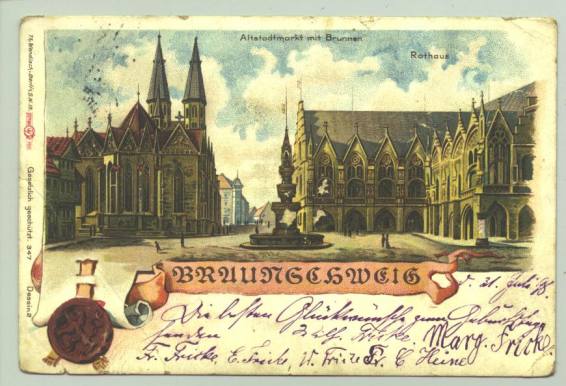 Altstadtmarkt mit Brunnen
Rathaus
BRAUNSCHWEIG
d. 31. Juli 98.
Die besten Glückwünsche zum Geburtstag
senden Fricke. Marg. Fricke
Fr. Fricke, E. Fricke, W. Fricke Fr. C Heine
Gesetzlich geschützt. 347 Dessin